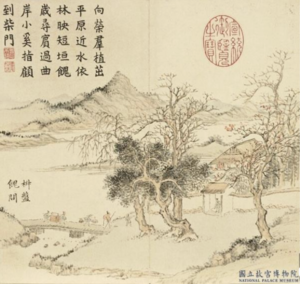 向榮羣植茁
平原近水依
林映短垣餽
歲尋賓過曲
岸小奚指顧
到柴門
椒盤
餽問
國立故宮博物院
NATIONAL PALACE MUSEUM